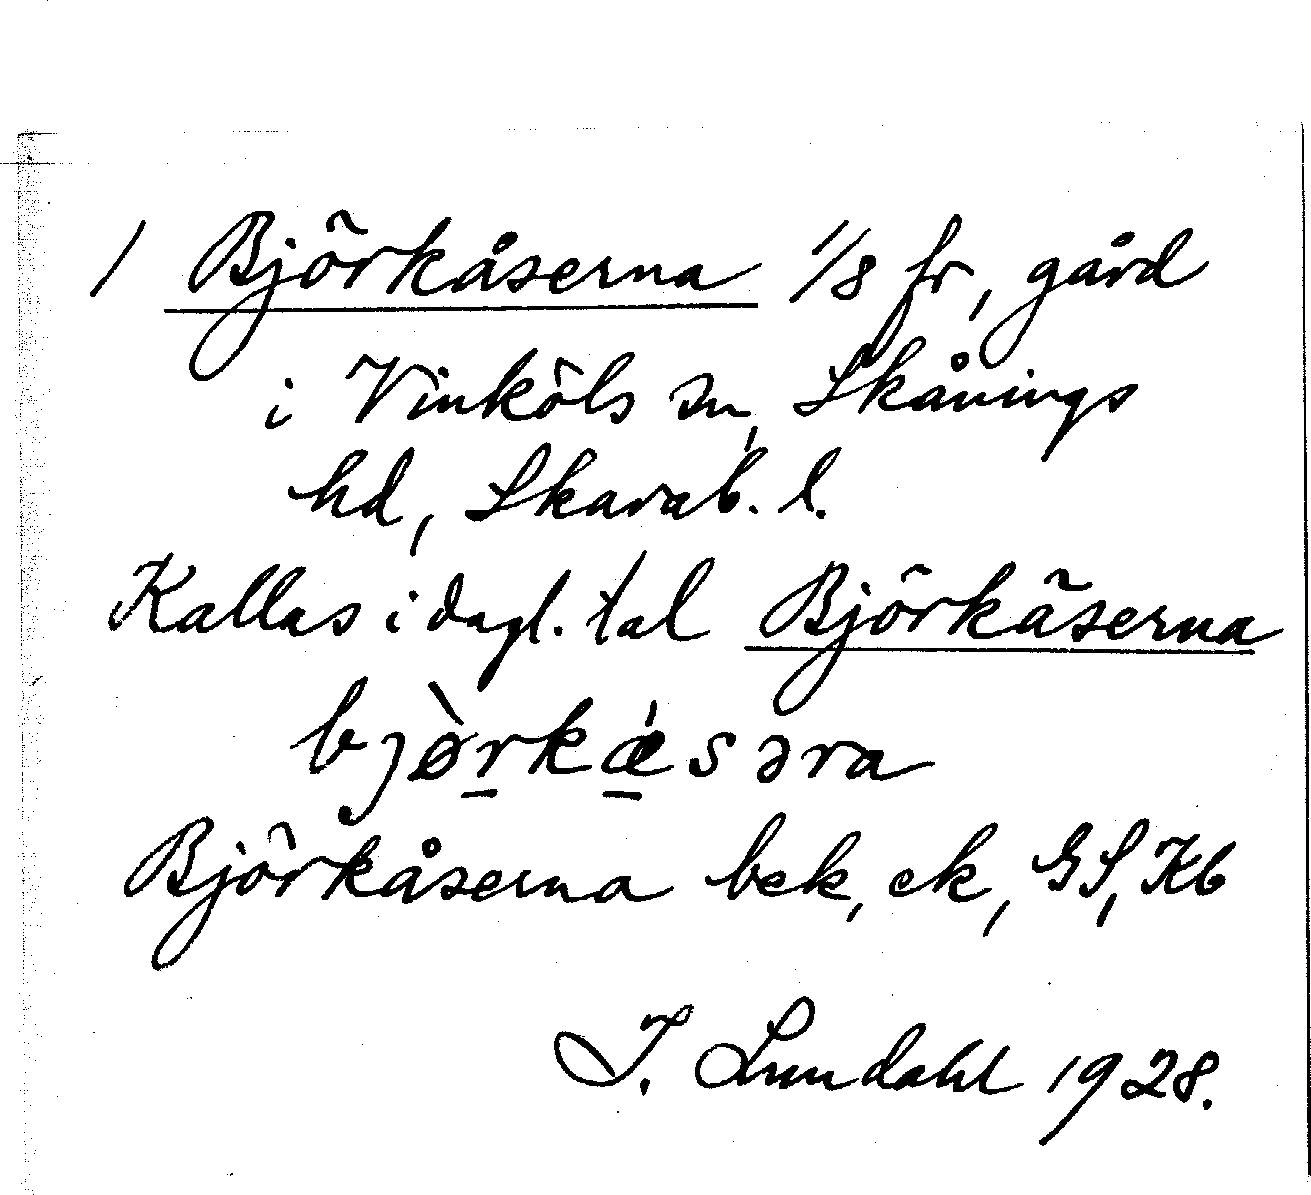 / Björkåserna 1/8 fr, gård
i Vinköls sn, Skånings
hd, Skarab. l.
Kallas i dagl. tal Björkäserna
bjø̀rkǽsəra
Björkåserna bek, ek, GS, Kb
I. Lundahl 1928.